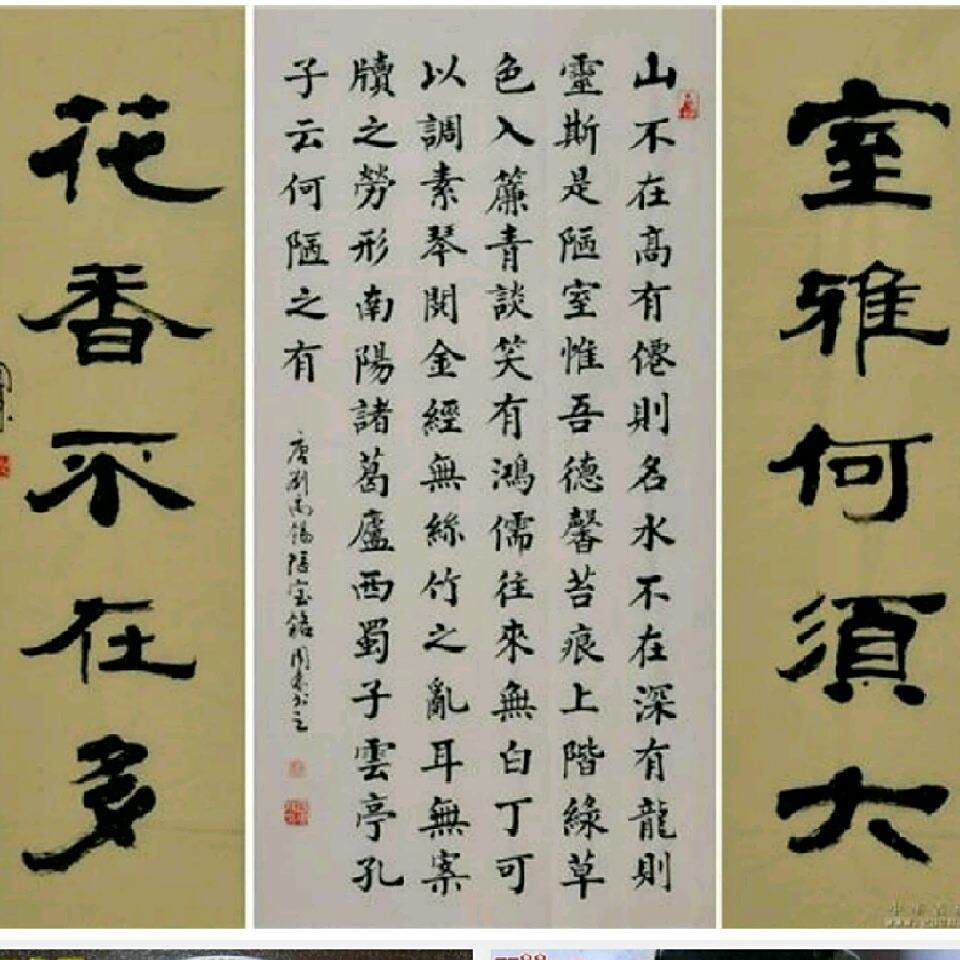 室雅何須大
山不在高有僊則名水不在深有龍則
靈斯是陋室惟吾德馨苔痕上階綠草
色入簾青談笑有鴻儒往來無白丁可
以調素琴閱金經無絲竹之亂耳無案
牘之勞形南陽諸葛廬西蜀子雲亭孔
子云何陋之有
唐劉禹錫陋室銘
花香不在多